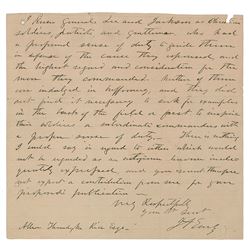 I knew Generals Lee and Jackson as Christian
soldiers, patriots, and gentlemen who had
a profound sense of duty to guide them
in defence of the cause they espoused and
the highest regard and consideration for the
men they commanded. Neither of them
ever indulged in buffoonery, and they did
not find it necessary to seek for examples
in the
their soldiers a subordinate commanders with
a proper sense of duty. There is nothing
I could say in regard to either which would
not be regarded as
expressed, and you cannot therefore
expect a contribution from me to your
proposed publication.
Very Respectfully
Your Obt Servt
J A Early
Allen Thorndyke Rice Esqr